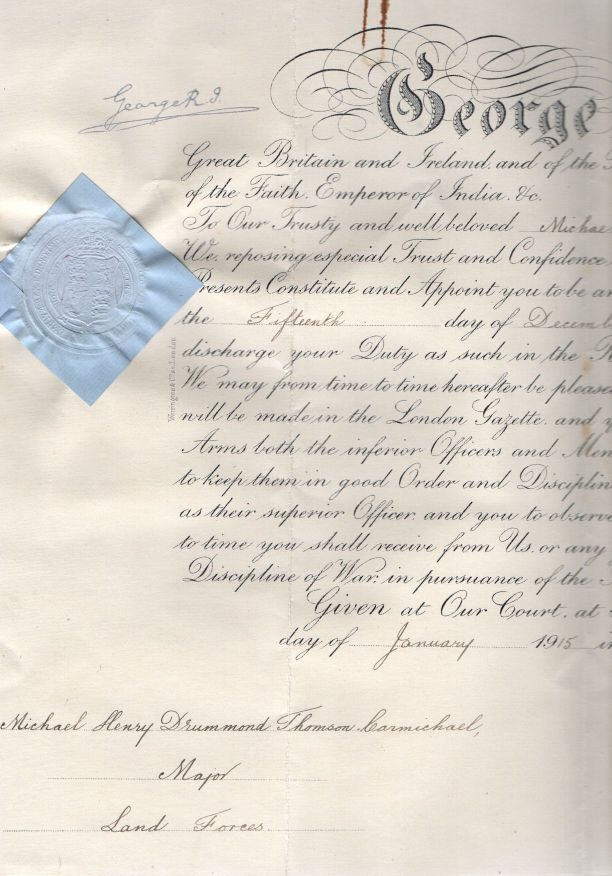 George R. I.
George
Great Britain and Ireland, and of the
of the Faith, Emperor of India, &c.
To Our Trusty and well beloved Michae
We, reposing especial Trust and Confidence,
Presents Constitute and Appoint you to be an
the Fifteenth day of Decemb
discharge your Duty as such in the
We may from time to time hereafter be please
will be made in the London Gazette, and y
Arms both the inferior Officers and Men
to keep them in good Order and Disciplin
as their superior Officer, and you to observe
to time you shall receive from Us, or any
Discipline of War, in pursuance of the
Given at Our Court, at
day of January 1915 in
Michael Henry Drummond Thomson Carmichael,
Major
Land Forces